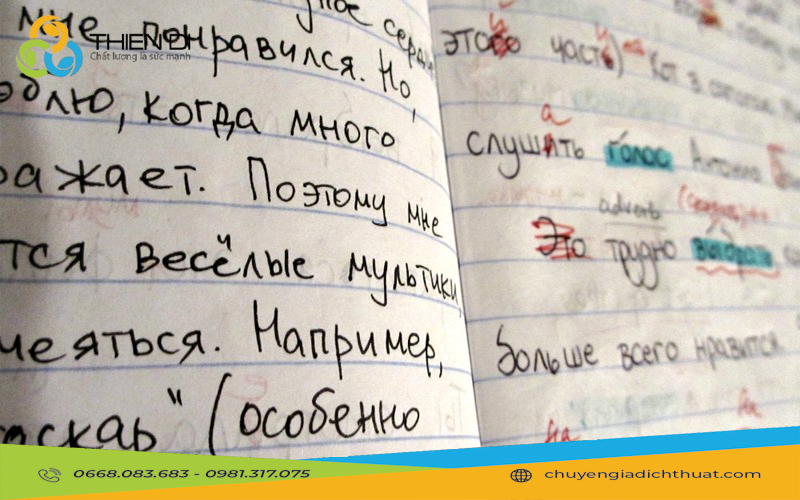 THIEN DI
Chất lượng là sức mạnh
мне понравился. Но,
блю, когда много
ажает. Поэтому мне
тся весёлые мультики,
меяться. Например,
аскаь" (особенно
этого часть) Кот в
а
слушать голос Антонио
adverb
Это трудно выбрать
больше всего нравится
на
0668.083.683 - 0981.317.075
chuyengiadichthuat.com